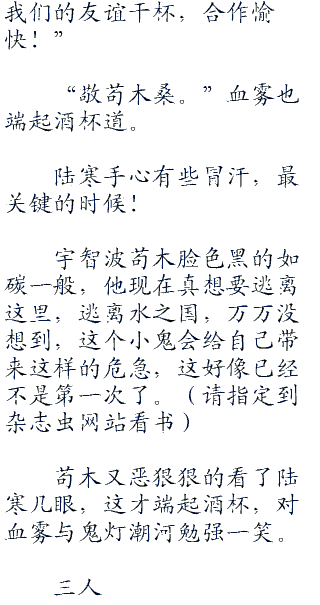 我们的友谊干杯，合作愉
快！”
“敬苟木桑。”血雾也
端起酒杯道。
陆寒手心有些冒汗，最
关键的时候！
宇智波苟木脸色黑的如
碳一般，他现在真想要逃离
这里，逃离水之国，万万没
想到，这个小鬼会给自己带
来这样的危急，这好像已经
不是第一次了。（请指定到
杂志虫网站看书）
苟木又恶狠狠的看了陆
寒几眼，这才端起酒杯，对
血雾与鬼灯潮河勉强一笑。
三人